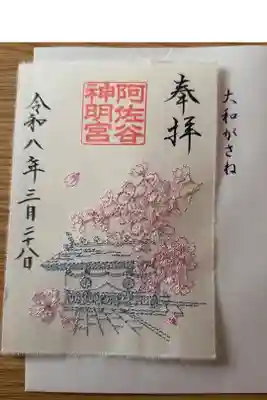 奉拝
阿佐谷
神明宮
令和八年三月二十八日
大和がさね